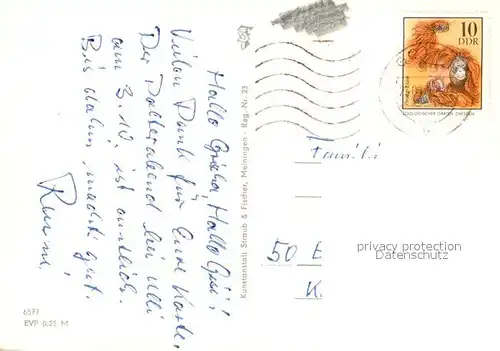 Hallo Gisela, Hallo Gisi!
Vielen Dank für Eure Karte.
Der Polterabend bei Ulli
am 3.10. ist amtlich.
Bis dahin, macht's gut.
6577
EVP 0,25 M
Kunstanstalt Straub & Fischer, Meiningen - Reg.-Nr. 23
10
DDR
ZOOLOGISCHER GARTEN DRESDEN
Famili
50 E
K.
privacy protection
Datenschutz